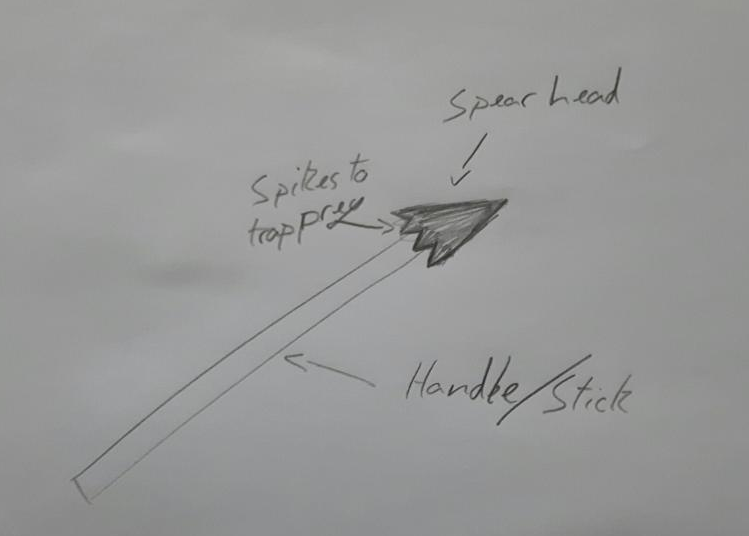 Spear head
Spikes to
trap prey
Handle/Stick